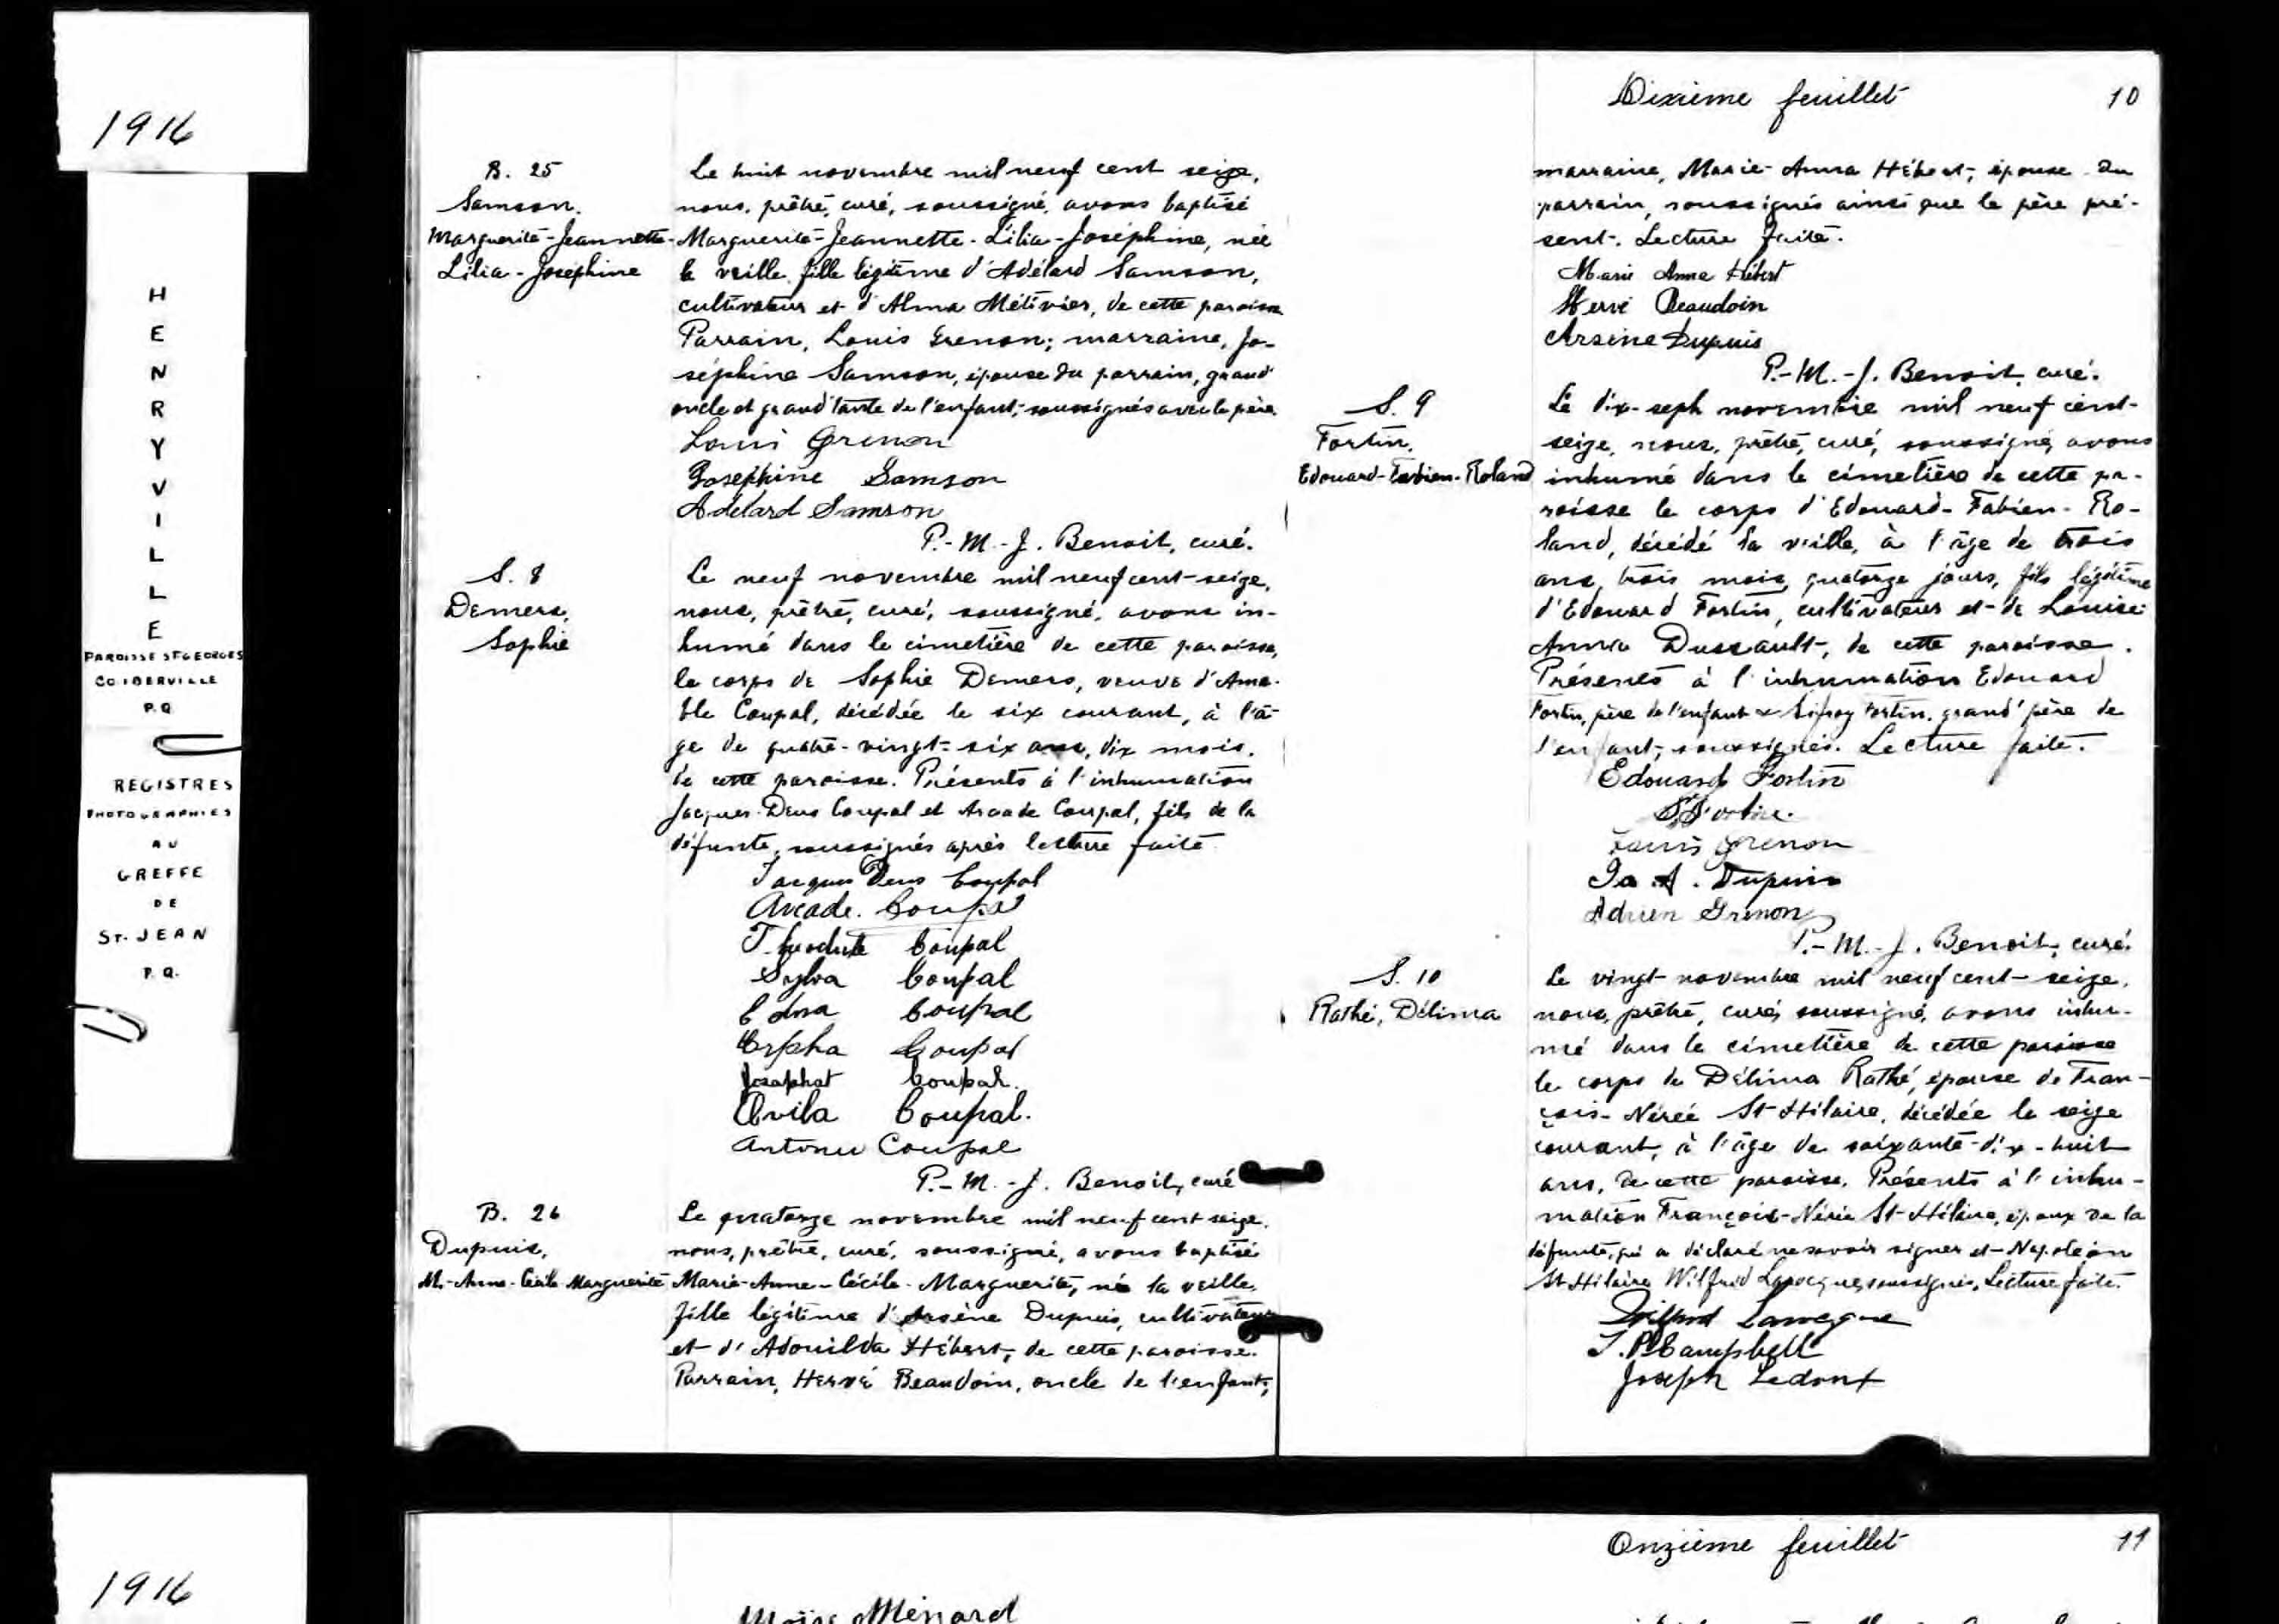 1916
HENRYVILLE
PAROISSE ST GEORGES
CO. IBERVILLE
P.Q.
REGISTRES
PHOTOGRAPHIES
AU
GREFFE
DE
ST. JEAN
P.Q.
B. 25
Samson,
Marguerite-Jeannette-
Lilia-Josephine
Le huit novembre mil neuf cent seize,
nous, prêtre, curé, soussigné, avons baptisé
Marguerite-Jeannette-Lilia-Joséphine, née
la veille, fille légitime d'Adélard Samson,
cultivateur et d'Alma Métivier, de cette paroisse
Parrain, Louis Grenon; marraine, Jo-
séphine Samson, épouse du parrain, grand
oncle et grand'tante de l'enfant; soussignés avec le père.
Louis Grenon
Josephine Samson
Adelard Samson
P.-M.-J. Benoit, curé.
S. 8
Demers,
Sophie
Le neuf novembre mil neuf cent-seize,
nous, prêtre, curé, soussigné, avons in-
humé dans le cimetière de cette paroisse,
le corps de Sophie Demers, veuve d'Ama-
ble Coupal, décédée le six courant, à l'â-
ge de quatre-vingt-six ans, dix mois,
de cette paroisse. Présents à l'inhumation
Jacques-Deus Coupal et Arcade Coupal, fils de la
défunte, soussignés après lecture faite
Jacques Deus Coupal
Arcade. Coupal
Coupal
Sylva Coupal
Edna Coupal
Orpha Coupal
Josaphat Coupal.
Avila Coupal.
Coupal
P.-M.-J. Benoit, curé
B. 26
Dupuis,
M.-Anne-Cécile-Marguerite
Le quatorze novembre mil neuf cent seize,
nous, prêtre, curé, soussigné, avons baptisé
Marie-Anne-Cécile-Marguerite, née la veille,
fille légitime d'Arsène Dupuis, cultivateur
et d'Adouilda Hébert, de cette paroisse.
Parrain, Hervé Beaudoin, oncle de l'enfant;
Dixième feuillet 10
marraine, Marie-Anna Hébert, épouse du
parrain, soussignés ainsi que le père pré-
sent. Lecture faite.
Marie Anna Hébert
Hervé Beaudoin
Arsène Dupuis
P.-M.-J. Benoit, curé.
S. 9
Fortin,
Edouard-Fabien-Roland
Le dix-sept novembre mil neuf cent-
seize, nous, prêtre, curé, soussigné, avons
inhumé dans le cimetière de cette pa-
roisse le corps d'Edouard-Fabien-Ro-
land, décédé la veille, à l'âge de trois
ans, trois mois, quatorze jours, fils légitime
d'Edouard Fortin, cultivateur et de Louise-
Anna Dussault, de cette paroisse.
Présents à l'inhumation Edouard
Fortin, père de l'enfant & Fortin, grand'père de
l'enfant; soussignés. Lecture faite.
Edouard Fortin
Louis Grenon
Dupuis
Adrien Grenon
P.-M.-J. Benoit, curé.
S. 10
Rathé, Délima
Le vingt novembre mil neuf cent-seize,
nous, prêtre, curé, soussigné, avons inhu-
mé dans le cimetière de cette paroisse
le corps de Délima Rathé, épouse de Fran-
çois-Nérée St-Hilaire, décédée le seize
courant, à l'âge de soixante-dix-huit
ans, de cette paroisse. Présents à l'inhu-
mation François-Nérée St-Hilaire, époux de la
défunte, qui a déclaré ne savoir signer et Napoléon
St-Hilaire Wilfrid Larocque, soussignés. Lecture faite.
Wilfrid Larocque
Campbell
Joseph Ledoux
1916
Moïse Ménard
Onzième feuillet 11